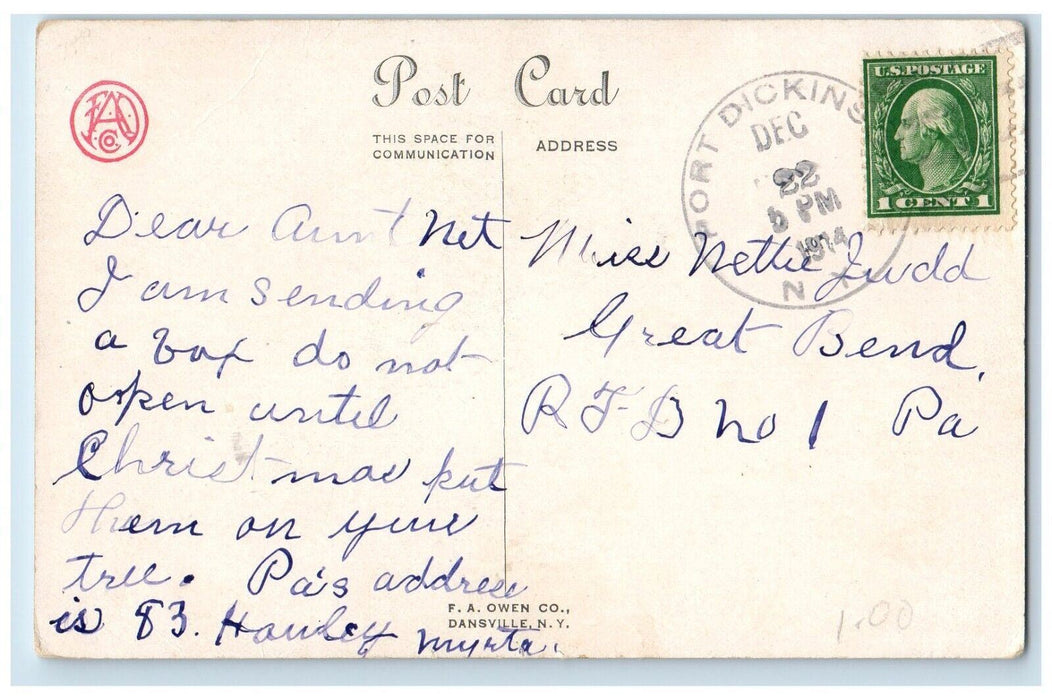 Post Card
THIS SPACE FOR
COMMUNICATION
ADDRESS
FAO
Co.
PORT DICKINS
DEC
22
5 PM
1914
N
U.S. POSTAGE
1 CENT 1
Dear Aunt Net
I am sending
a box do not
open until
Christmas put
them on your
tree. Pa's address
is 83. Hawley Myrta.
Miss Nettie Judd
Great Bend,
RFD No 1 Pa
F. A. OWEN CO.,
DANSVILLE, N. Y.
1.00